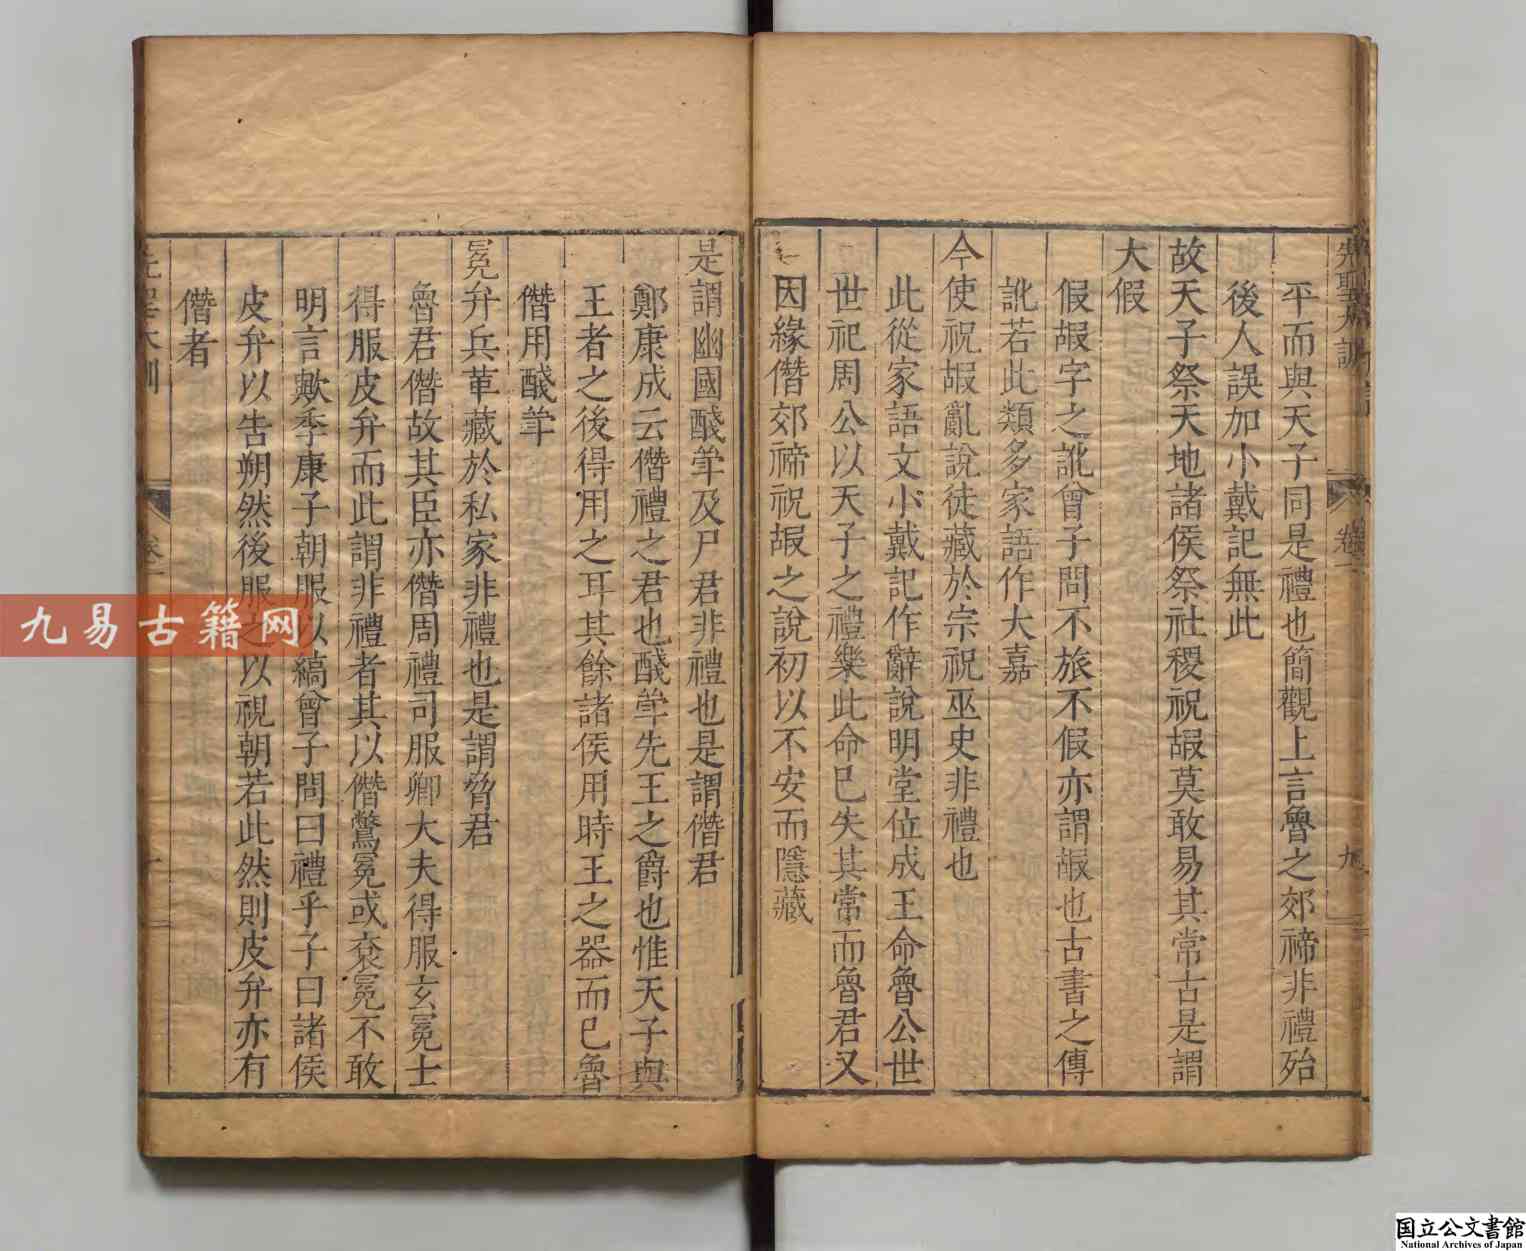 先聖大訓
卷一
九
平而與天子同是禮也簡觀上言魯之郊禘非禮殆
後人誤加小戴記無此
故天子祭天地諸侯祭社稷祝嘏莫敢易其常古是謂
大假
假嘏字之訛曾子問不旅不假亦謂嘏也古書之傳
訛若此類多家語作大嘉
今使祝嘏亂說徒藏於宗祝巫史非禮也
此從家語文小戴記作辭說明堂位成王命魯公世
世祀周公以天子之禮樂此命已失其常而魯君又
因緣僭郊禘祝嘏之說初以不安而隱藏
是謂幽國醆斝及尸君非禮也是謂僭君
鄭康成云僭禮之君也醆斝先王之爵也惟天子與
王者之後得用之耳其餘諸侯用時王之器而已魯
僭用醆斝
冕弁兵革藏於私家非禮也是謂脅君
魯君僭故其臣亦僭周禮司服卿大夫得服玄冕士
得服皮弁而此謂非禮者其以僭鷩冕或衮冕不敢
明言歟季康子朝服以縞曾子問曰禮乎子曰諸侯
皮弁以告朔然後服之以視朝若此然則皮弁亦有
僭者
先聖大訓
卷一
十
九易古籍网
国立公文書館
National Archives of Japan